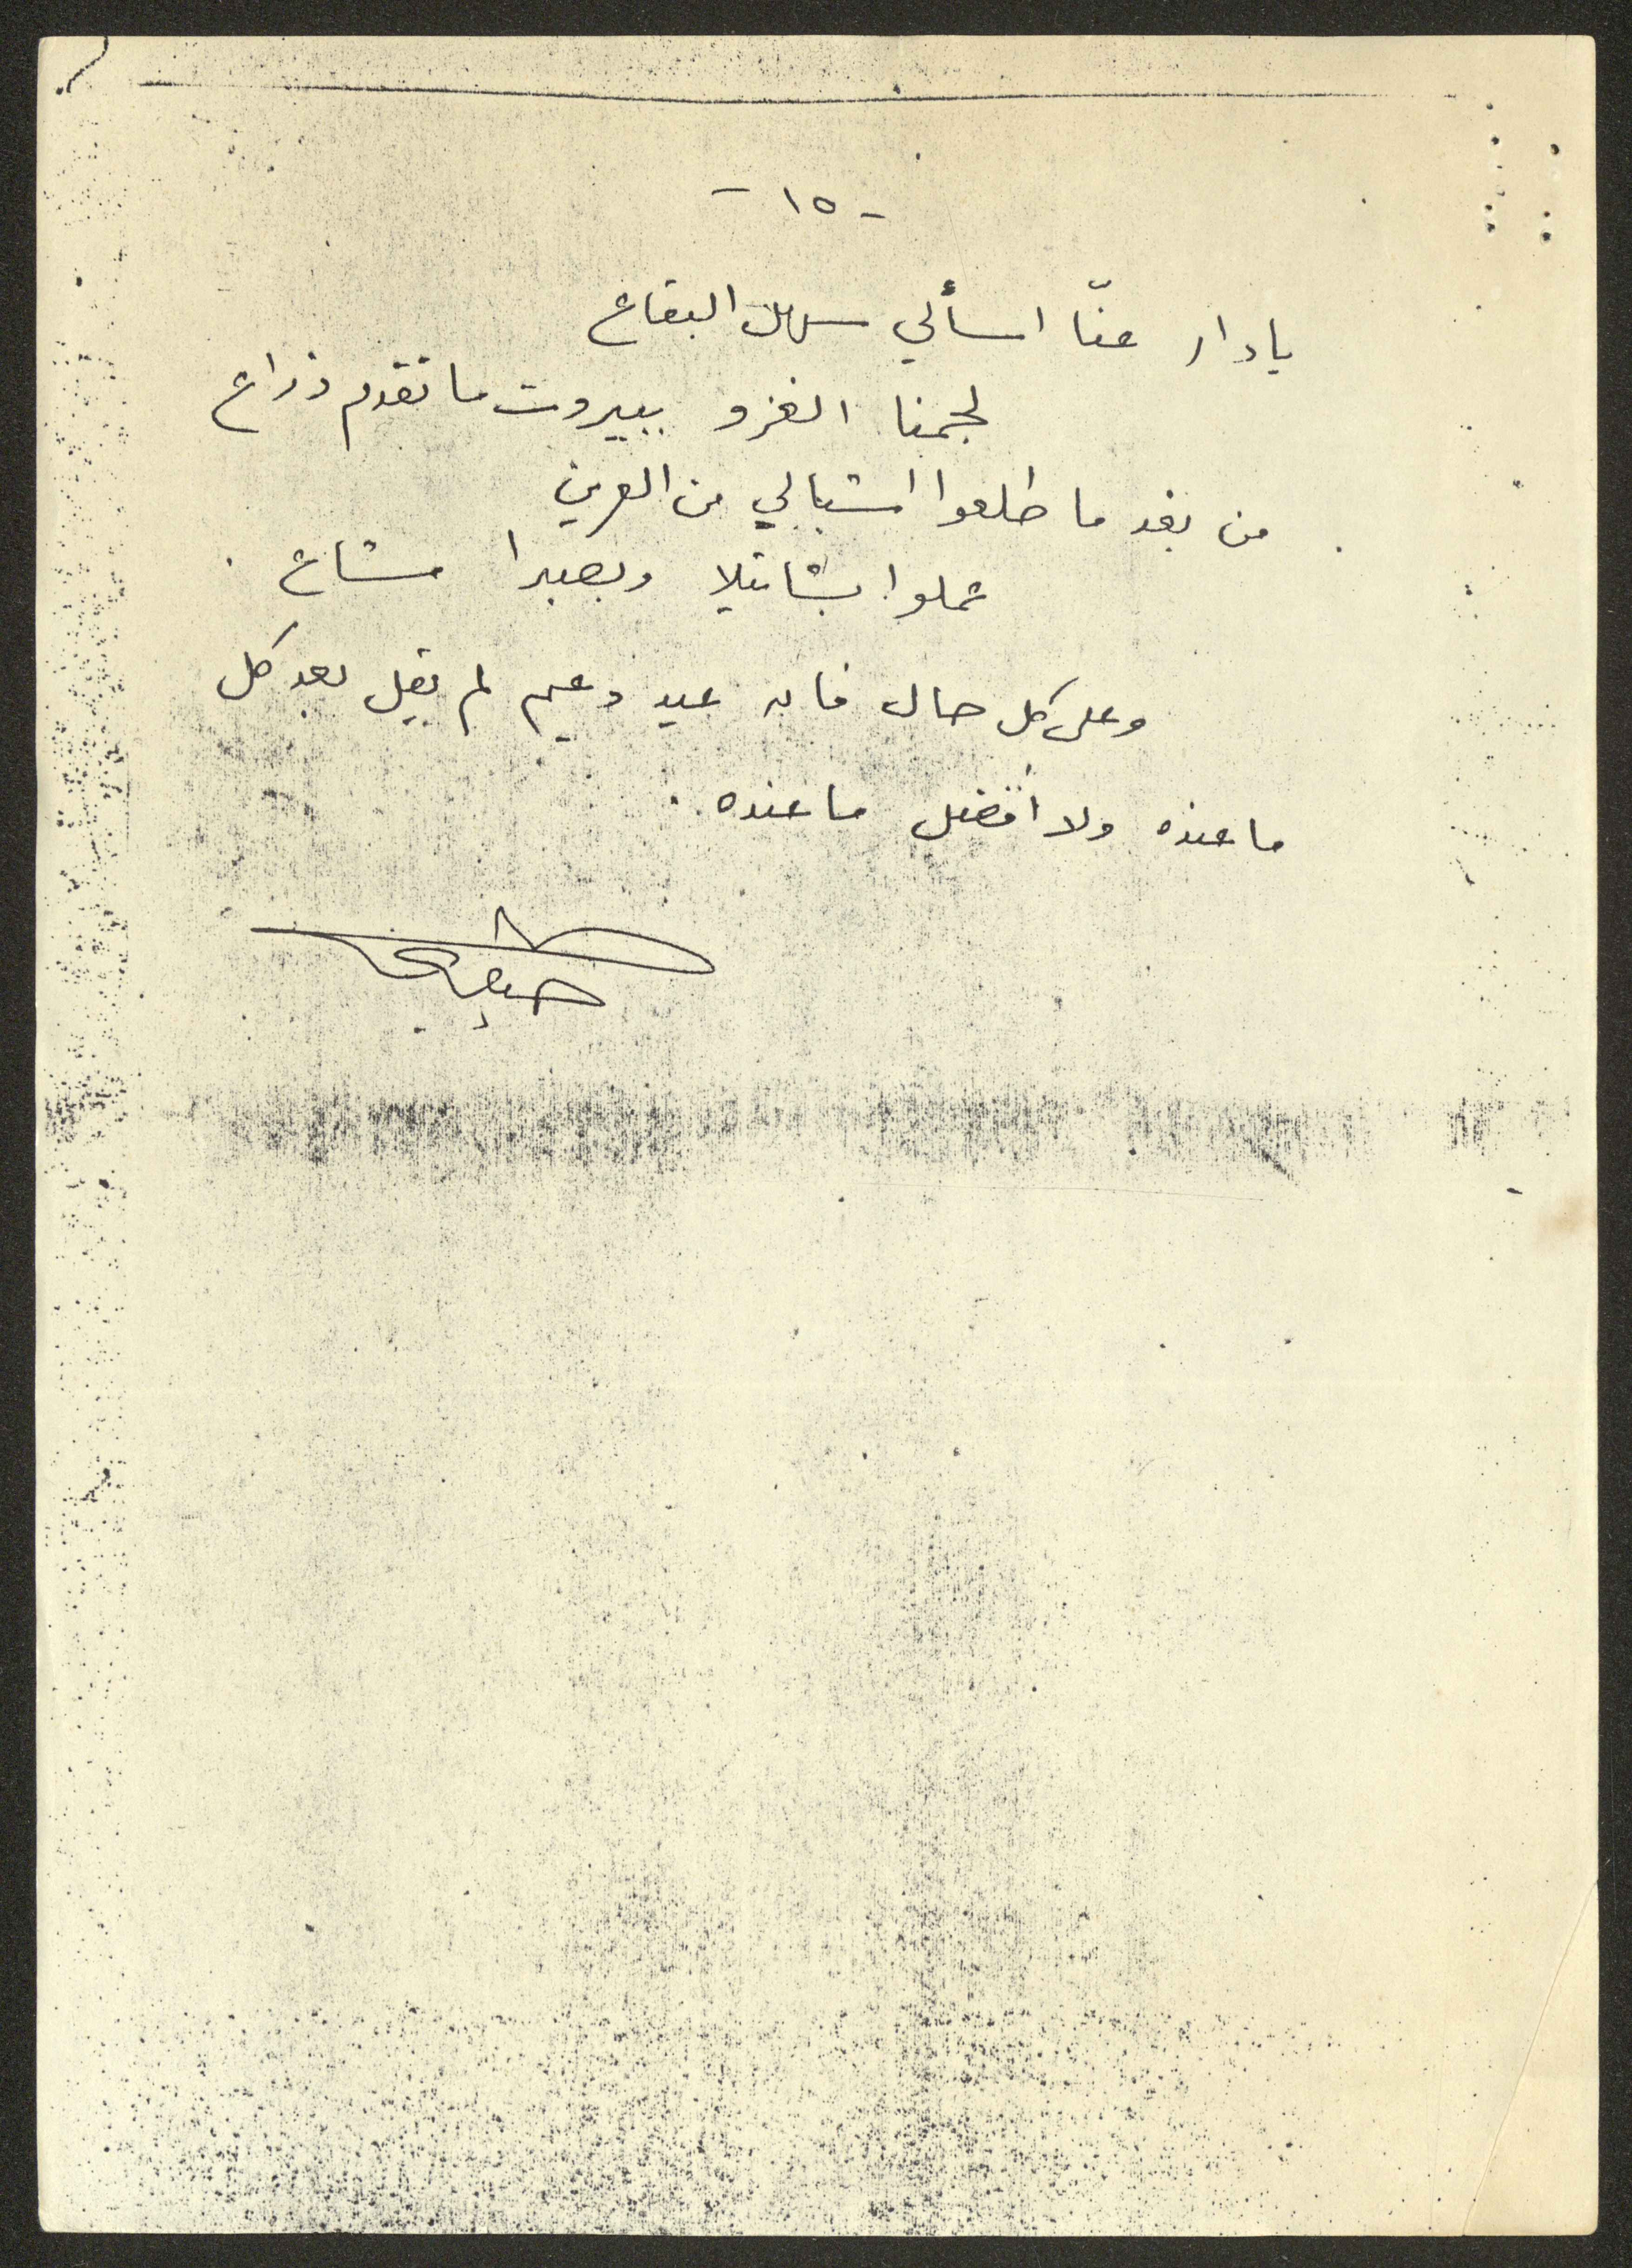 - ١٥ -
يا دار عنّا اسألي سهل البقاع
لجمنا الغزو ببيروت ما تقدم ذراع
من بعد ما طلعوا اشبالي من العرين
عملوا بشاتيلا وبصبرا مشاع .
وعلى كل حال فان عيد دعيم لم يقل بعد كل
ما عنده ولا أفضل ما عنده .